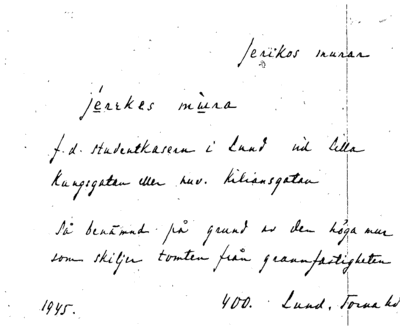 Jerikos murar
jerekes mura
f.d. studentkasern i Lund vid Lilla
Kungsgatan eller nuv. Kiliansgatan
Så benämnd på grund av den höga mur
som skiljer tomten från grannfastigheten
1945. 400. Lund, Torna hd